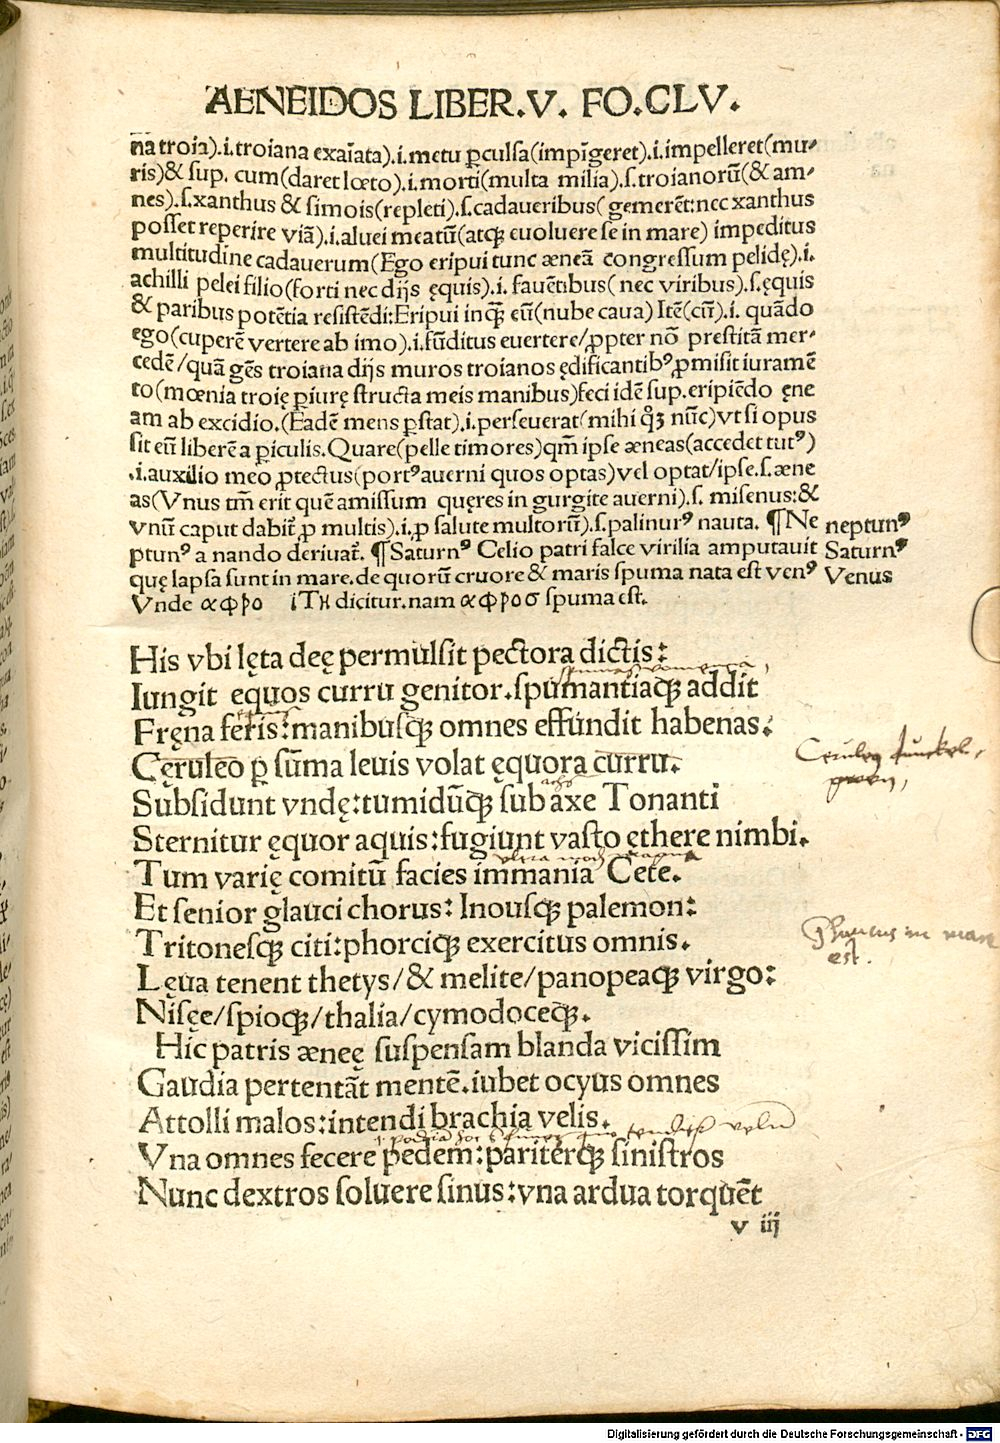 AENEIDOS LIBER.V. FO.CLV.
na troia).i.troiana exaĩata).i.metu ꝑculsa(impĩgeret).i.impelleret(mu⸗
ris)& sup. cum(daret lœto).i.morti(multa milia).s.troianorũ(& am⸗
nes).s.xanthus & simois(repleti).s.cadaueribus( gemerẽt:nec xanthus
posset reperire viã).i.aluei meatũ(atqꝫ euoluere se in mare) impeditus
multitudine cadauerum(Ego eripui tunc æneã congressum pelidę).i.
achilli pelei filio(forti nec dijs ęquis).i. fauẽtibus( nec viribus).s.ęquis
& paribus potẽtia resistẽdi:Eripui inqꝫ eũ(nube caua) Itẽ(cũ).i. quãdo
ego(cuperẽ vertere ab imo).i.fũditus euertere/ꝓpter nõ prestitã mer⸗
cedẽ/quã gẽs troiana dijs muros troianos ędificantibꝰ ꝓmisit iuramẽ
to(mœnia troię ꝑiurę structa meis manibus)feci idẽ sup.eripiẽdo ęne
am ab excidio.(Eadẽ mens ꝑstat).i.perseuerat(mihi qͦꝫ nũc)vt si opus
sit eũ liberẽ a ꝑiculis.Quare(pelle timores)qm̃ ipse æneas(accedet tutꝰ)
.i.auxilio meo ꝓtectus(portꝰ auerni quos optas)vel optat/ipse.s.æne
as(Vnus tm̃ erit quẽ amissum quęres in gurgite auerni).s. misenus:&
vnũ caput dabit̃ ꝓ multis).i.ꝓ salute multorũ).s.palinurꝰ nauta. ¶Ne neptunꝰ
ptunꝰ a nando deriuat̃. ¶Saturnꝰ Celio patri falce virilia amputauit Saturnꝰ
quę lapsa sunt in mare.de quorũ cruore & maris spuma nata est venꝰ Venus
Vnde αφρο ιτη dicitur.nam αφροσ spuma est.
His vbi lęta deę permulsit pectora dictis:
Iungit equos curru genitor.spumantiaqꝫ addit
Fręna feris:manibusqꝫ omnes effundit habenas.
Cęruleo ꝑ sũma leuis volat ęquora curru.
Ceruleo
Subsidunt vndę:tumidũqꝫ sub axe Tonanti
Sternitur ęquor aquis:fugiunt vasto ęthere nimbi.
Tum varię comitũ facies immania Cete.
Et senior glauci chorus: Inousqꝫ palemon:
Glaucus in mare
est.
Tritonesqꝫ citi:phorciqꝫ exercitus omnis.
Lęua tenent thetys/& melite/panopeaqꝫ virgo:
Nisęe/spioqꝫ/thalia/cymodoceqꝫ.
Hic patris æneę suspensam blanda vicissim
Gaudia pertentãt mentẽ.iubet ocyus omnes
Attolli malos:intendi brachia velis.
Vna omnes fecere pedem:pariterqꝫ sinistros
Nunc dextros soluere sinus:vna ardua torquẽt
v iij
Digitalisierung gefördert durch die Deutsche Forschungsgemeinschaft - DFG